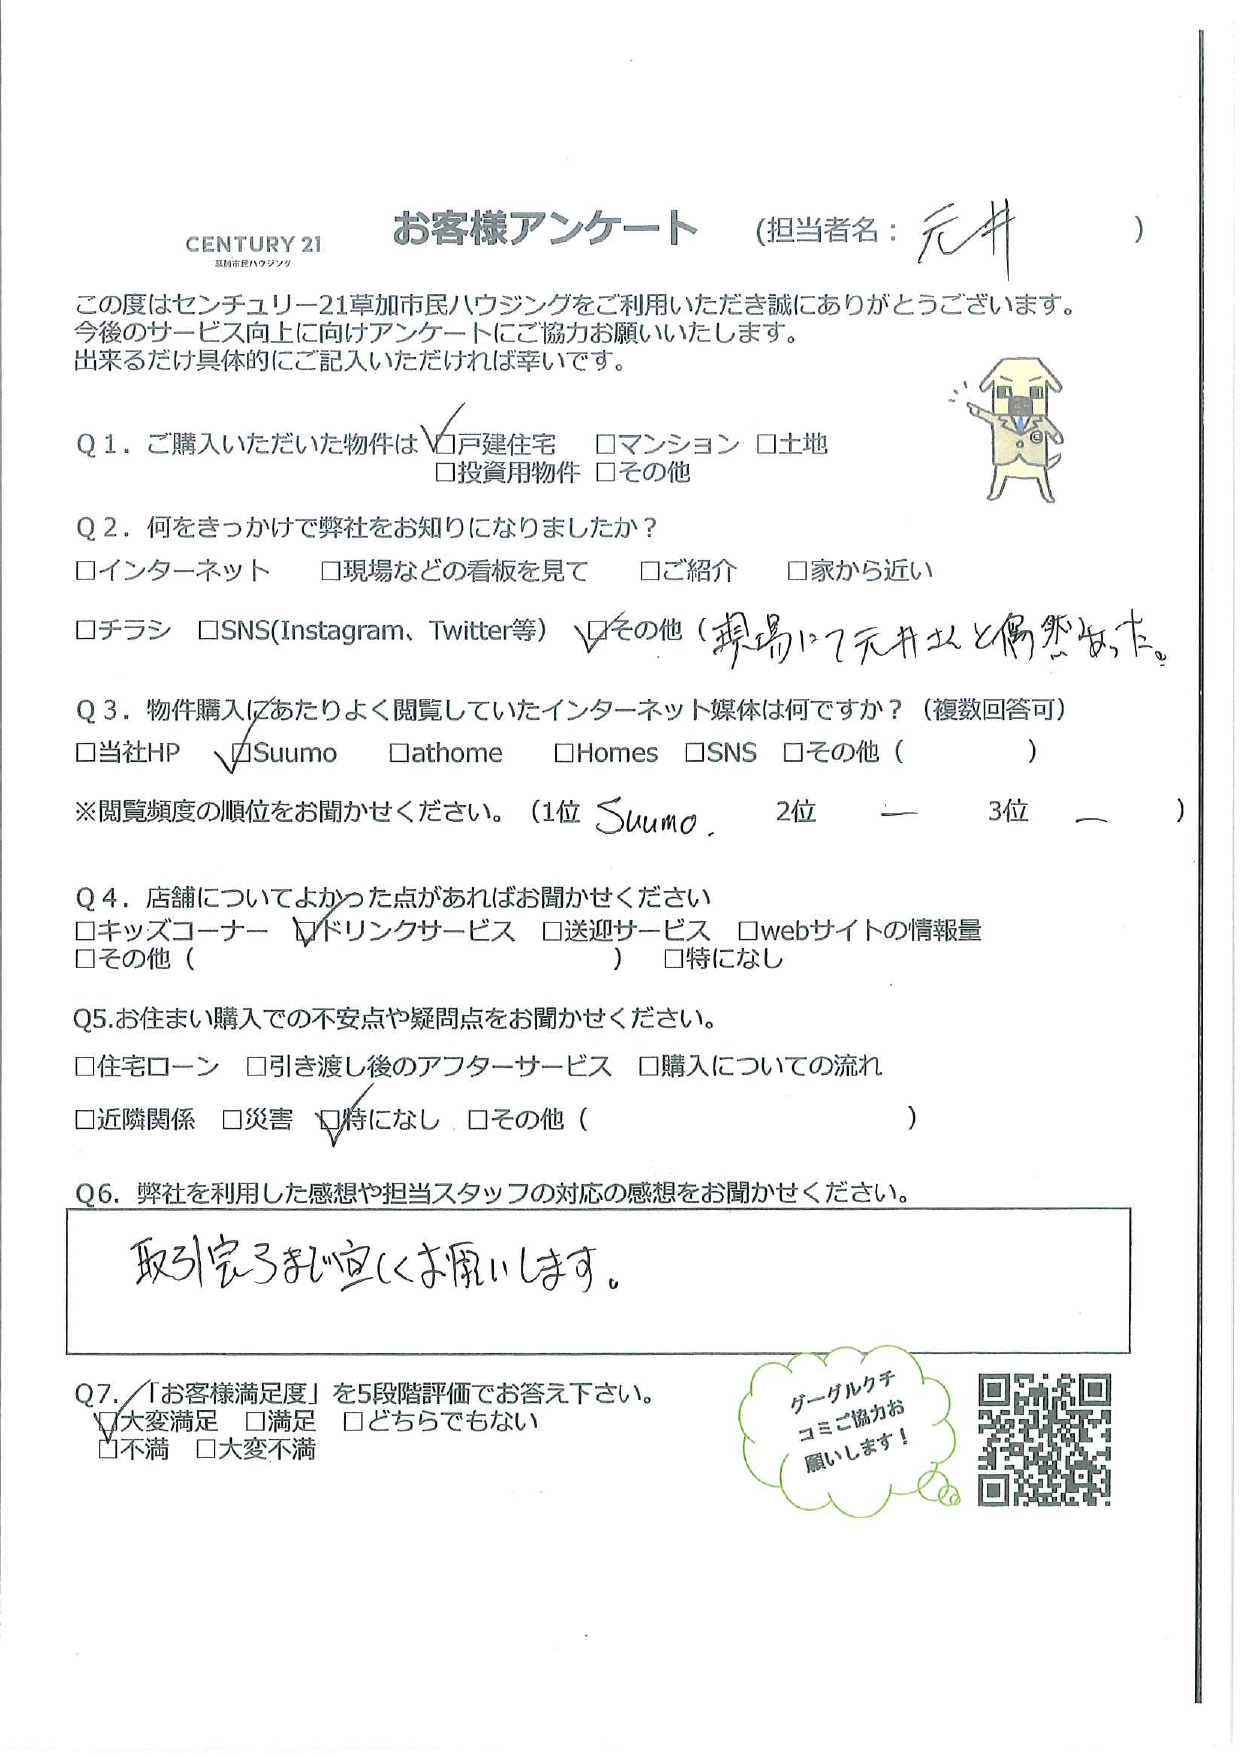 CENTURY 21
草加市民ハウジング
お客様アンケート (担当者名： 元井 )
この度はセンチュリー21草加市民ハウジングをご利用いただき誠にありがとうございます。
今後のサービス向上に向けアンケートにご協力お願いいたします。
出来るだけ具体的にご記入いただければ幸いです。
Q１．ご購入いただいた物件は ☑戸建住宅 □マンション □土地
□投資用物件 □その他
Q２．何をきっかけで弊社をお知りになりましたか？
□インターネット □現場などの看板を見て □ご紹介 □家から近い
□チラシ □SNS(Instagram、Twitter等） ☑その他（現場にて元井さんと偶然あった。
Q３．物件購入にあたりよく閲覧していたインターネット媒体は何ですか？（複数回答可）
□当社HP ☑Suumo □athome □Homes □SNS □その他（ ）
※閲覧頻度の順位をお聞かせください。（1位 Suumo. 2位 — 3位 — ）
Q４．店舗についてよかった点があればお聞かせください
□キッズコーナー ☑ドリンクサービス □送迎サービス □webサイトの情報量
□その他（ ） □特になし
Q5.お住まい購入での不安点や疑問点をお聞かせください。
□住宅ローン □引き渡し後のアフターサービス □購入についての流れ
□近隣関係 □災害 ☑特になし □その他（ ）
Q6．弊社を利用した感想や担当スタッフの対応の感想をお聞かせください。
取引完了まで宜しくお願いします。
Q7.「お客様満足度」を5段階評価でお答え下さい。
☑大変満足 □満足 □どちらでもない
□不満 □大変不満
グーグルクチ
コミご協力お
願いします！